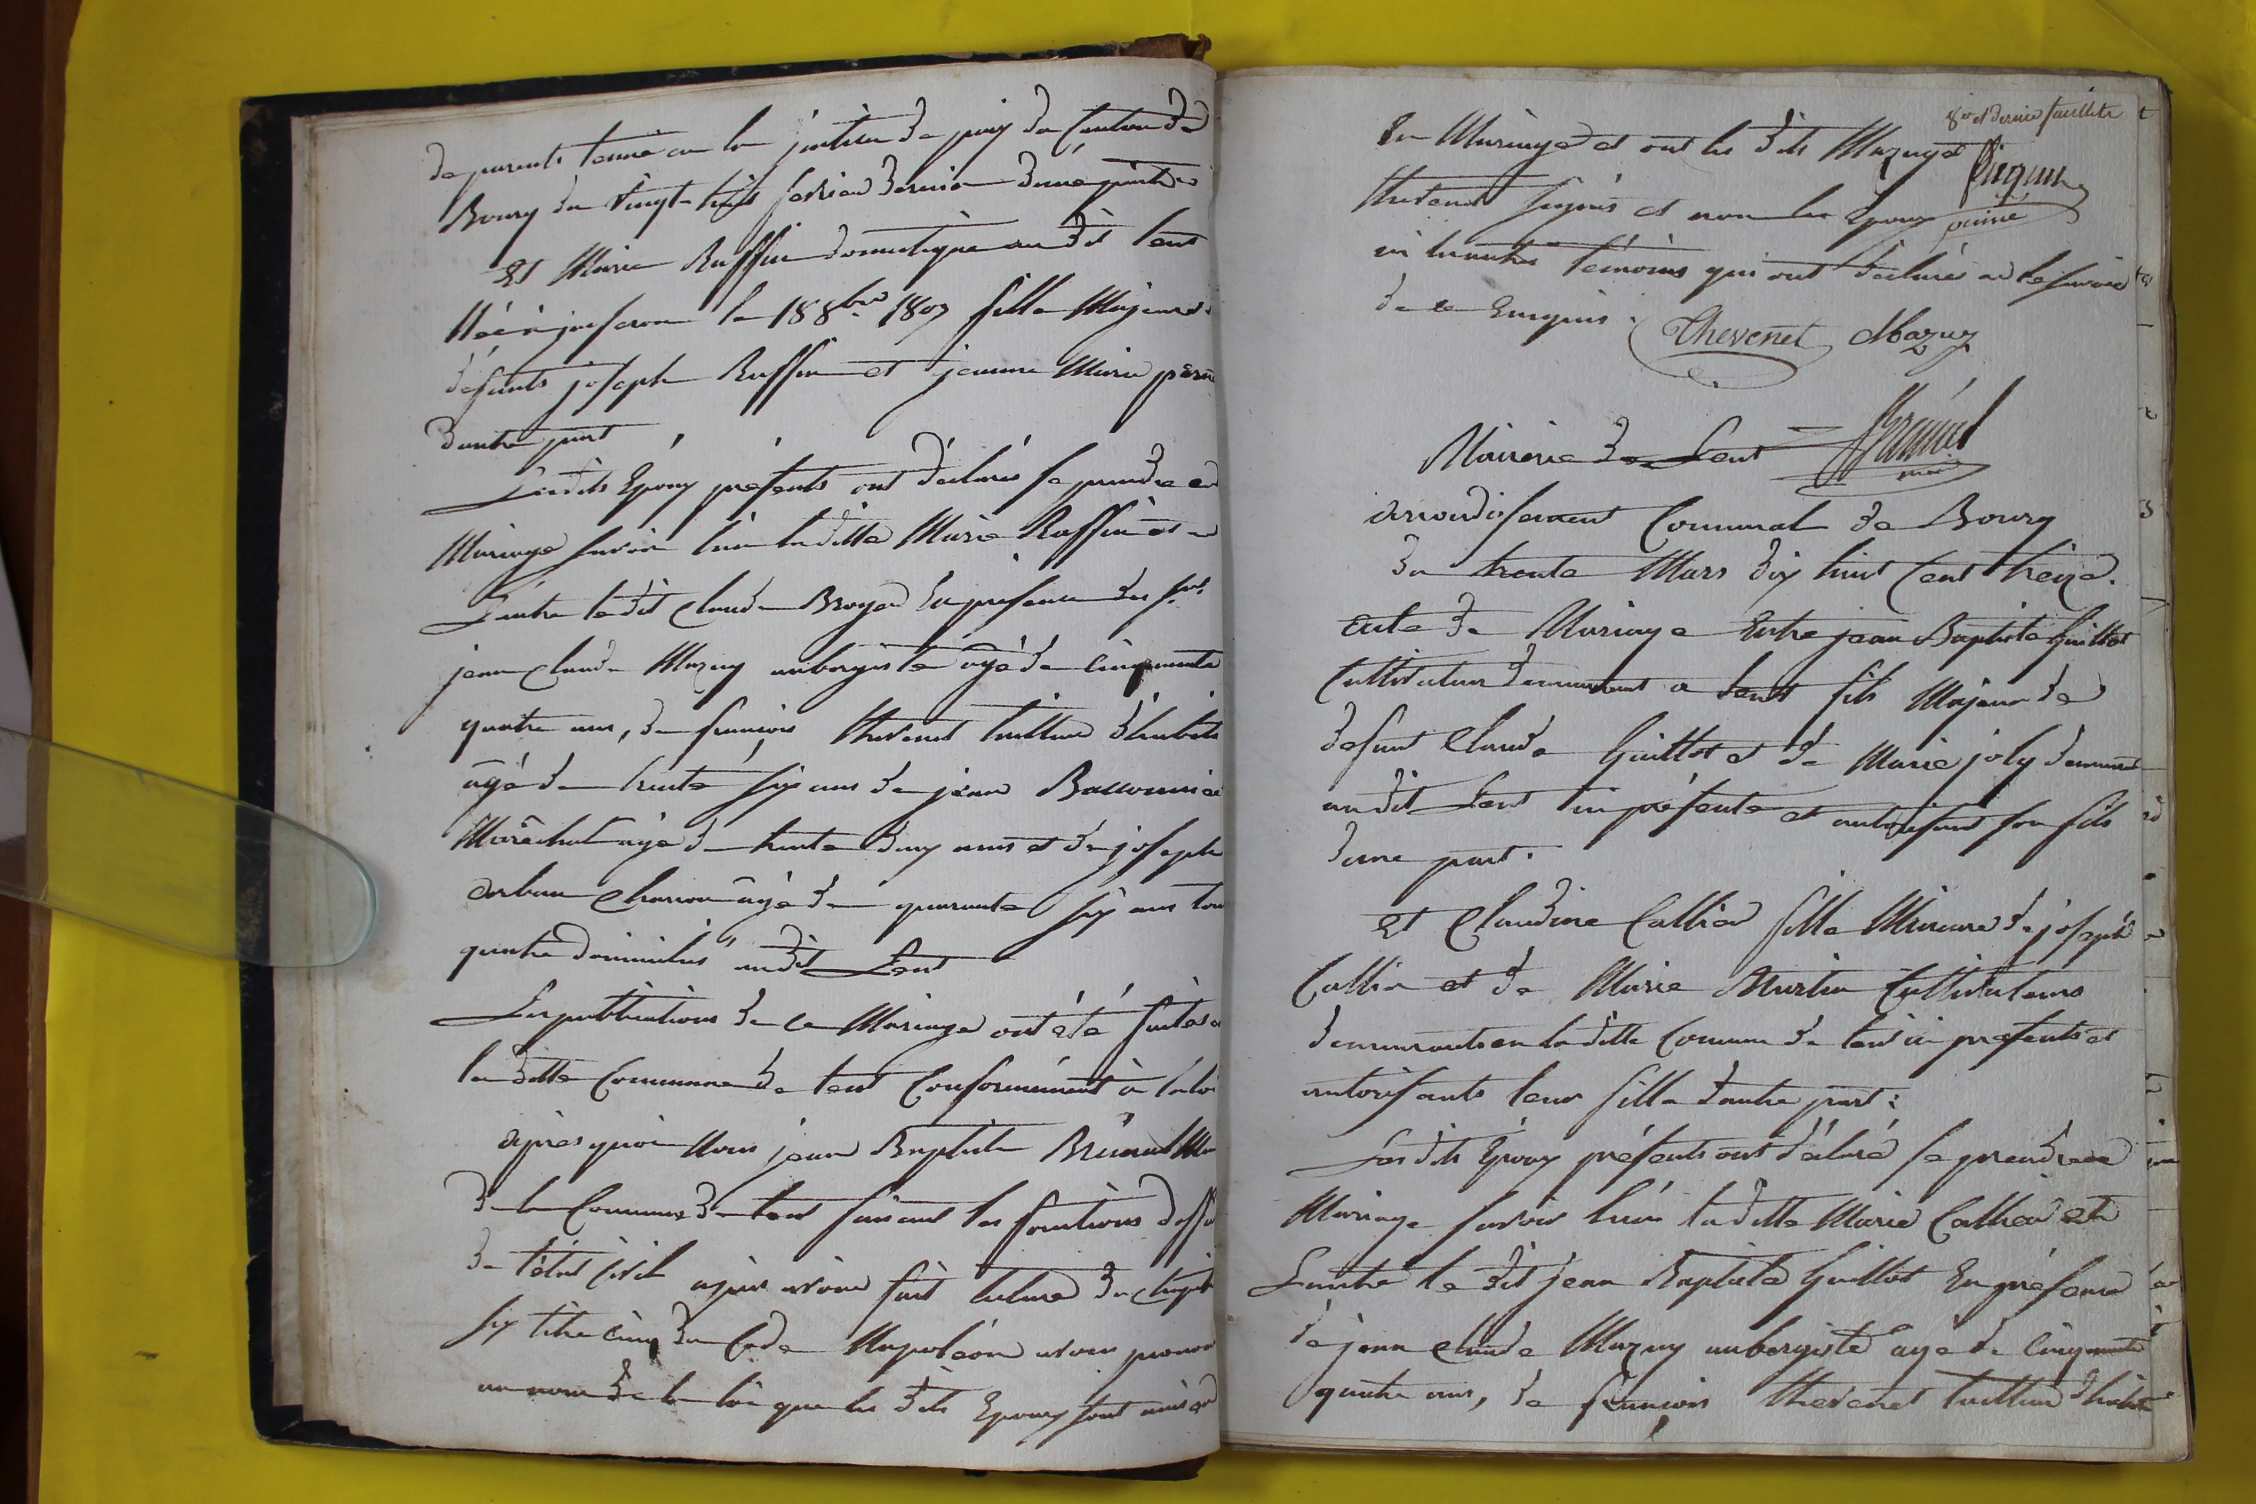 de parents tenue en la justice de paix du Canton de
Bourg du vingt-trois fevrier dernier d'une part
Et Marie Ruffin domestique au dit Lent
Née à le 18 8bre fille Majeure
défunts joseph Ruffin et jeanne Marie
d'autre part
Lesdits Epoux présents ont déclarés se prendre en
Mariage savoir l'un laditte Marie Ruffin et
L'autre ledit Claude Broyer En présence des Srs
jean Claude Mazuy aubergiste âgé de cinquante
quatre ans, de françois thevenet tailleur d'habits
âgé de trente six ans de jean
Maréchal âgé de trente deux ans et de joseph
charron âgé de quarante six ans tous
quatre domiciliés audit Lent
Les publications de ce Mariage ont été faites
la ditte Commune de Lent Conformément à la loi
après quoi Nous jean Baptiste Brünel
de la Commune de Lent faisant les fonctions
de l'état Civil après avoir fait lecture du
six titre cinq du Code Napoléon avons
au nom de la loi que les dits Epoux sont unis en
8e et dernier feuillet
En Mariage et ont les dits Mazuy et
thevenet signés et non les Epoux
ni les autres témoins qui ont déclarés ne le savoir
de ce Enquis.
Thevenet Mazuy
Mairie de Lent
Brünel
maire
arrondissement Communal de Bourg
du trente Mars dix huit Cent treize.
acte de Mariage Entre jean Baptiste Guillot
Cultivateur demeurant a Lent fils Majeur de
defunt Claude Guillot et de Marie joly demeurant
au dit Lent ici présente et autorisant son fils
d'une part.
Et Claudine Callier fille Mineure de joseph
Callier et de Marie Martin Cultivateurs
demeurants en la ditte Comune de Lent ici presents et
autorisants leur fille d'autre part:
Les dits Epoux présents ont déclaré se prendre en
Mariage savoir l'un la ditte Marie Callier et
L'autre le dit jean Baptiste Guillot En présence
de jean Claude Mazuy aubergiste agé de Cinquante
quatre ans, de françois thevenet tailleur d'habits